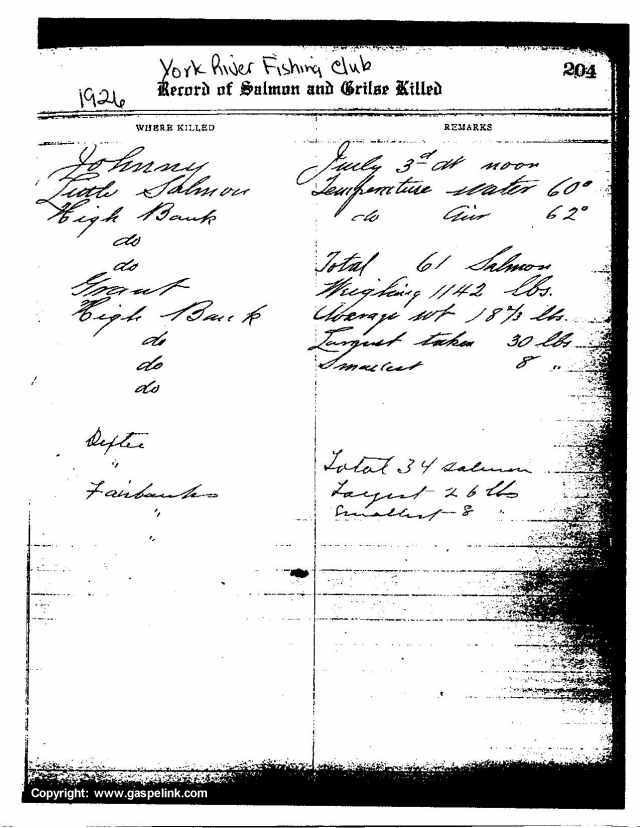 York River Fishing Club
204
1926
Record of Salmon and Grilse Killed
WHERE KILLED
REMARKS
Johnny
July 3rd at noon
Little Salmon
Temperature water 60°
High Bank
do Air 62°
do
do
Total 61 Salmon
Grant
Weighing 1142 lbs.
High Bank
Average wt 18 2/3 lbs.
do
Largest taken 30 lbs
do
Smallest 8 "
do
"
Total 34 salmon
Fairbanks
Largest 26 lbs
"
Smallest 8 "
"
Copyright: www.gaspelink.com